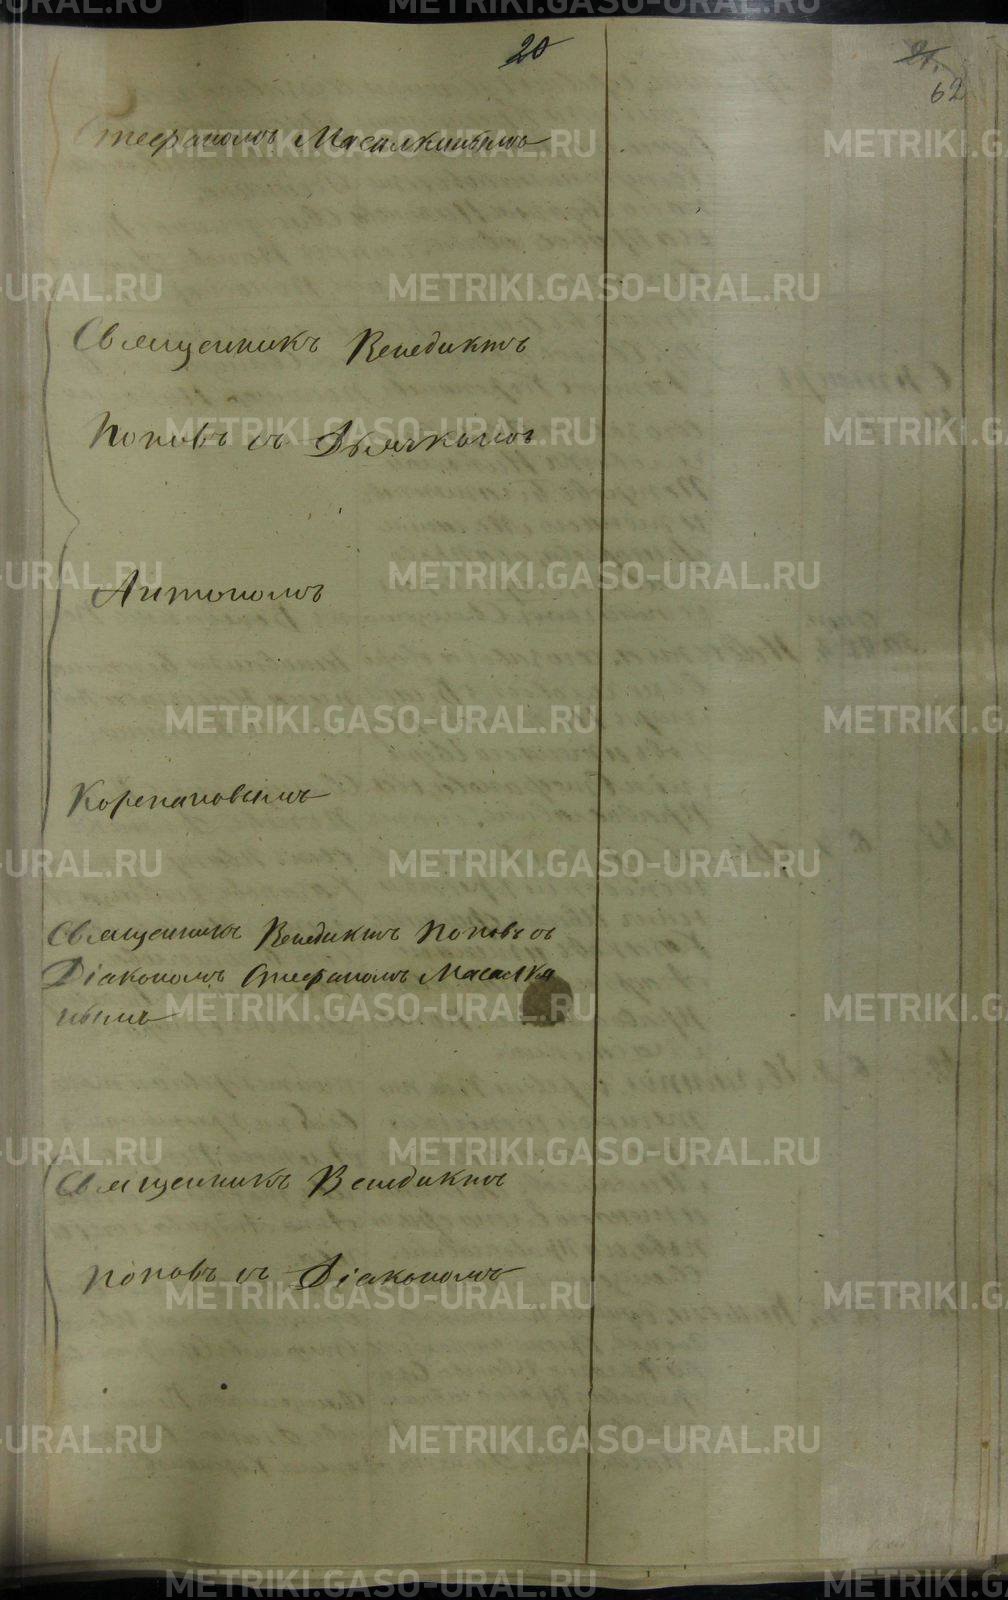 20
21.
62
Стефаномъ Масалкинымъ
Священникъ Венедиктъ
Поповъ съ Дьячкомъ
Антономъ
Корепановымъ
Священникъ Венедиктъ Поповъ съ
Діакономъ Стефаномъ Масалки
нымъ
Священникъ Венедиктъ
Поповъ съ Діакономъ
METRIKI.GASO-URAL.RU